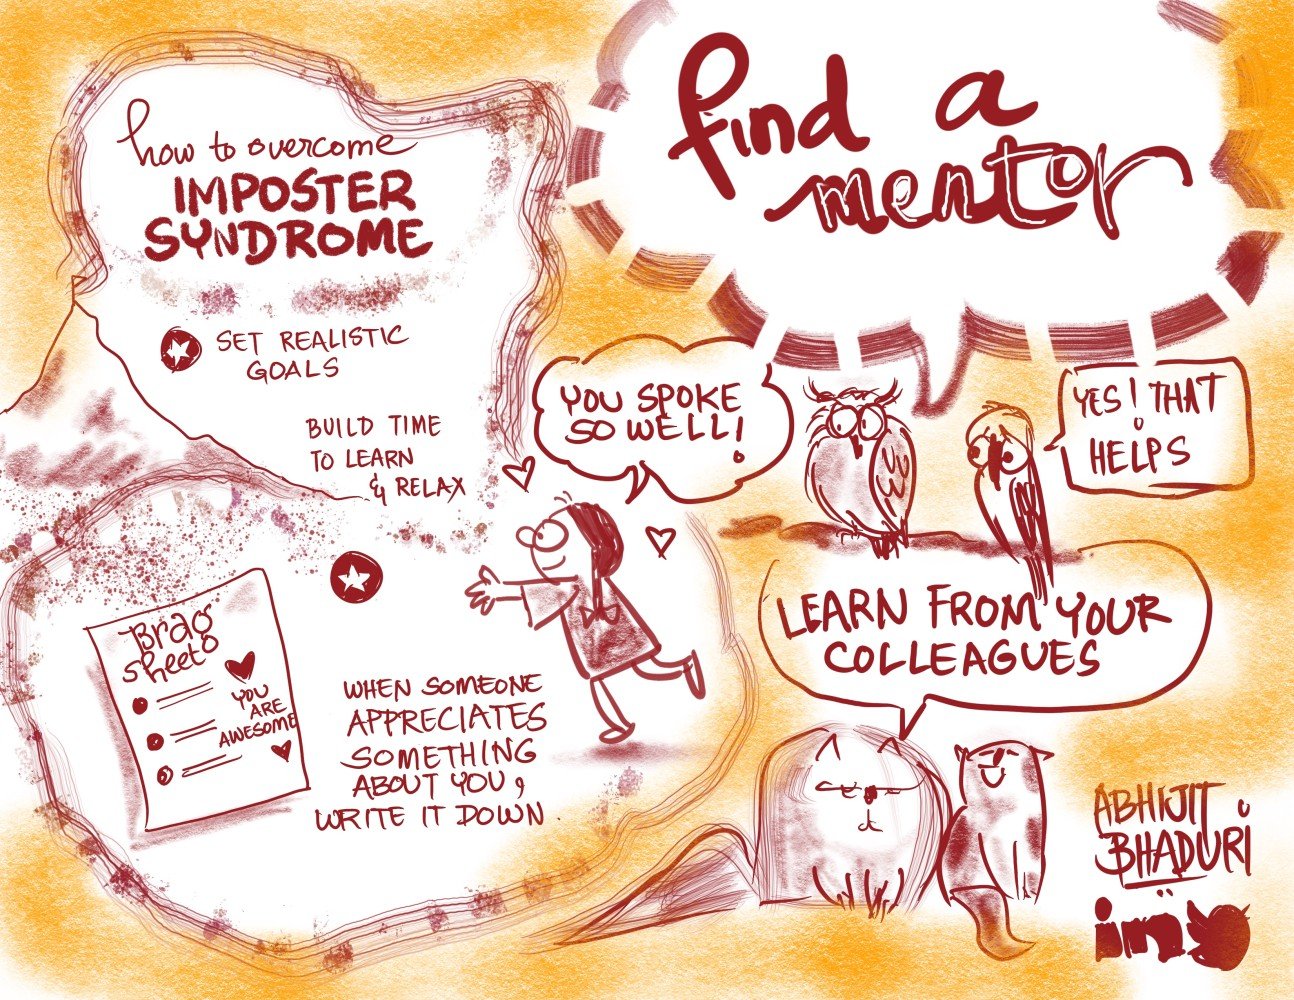 how to overcome
IMPOSTER
SYNDROME
SET REALISTIC
GOALS
BUILD TIME
TO LEARN
& RELAX
find a
mentor
YOU SPOKE
SO WELL!
YES! THAT
HELPS
LEARN FROM YOUR
COLLEAGUES
Brag
sheet
YOU
ARE
AWESOME
WHEN SOMEONE
APPRECIATES
SOMETHING
ABOUT YOU,
WRITE IT DOWN.
ABHIJIT
BHADURI
in